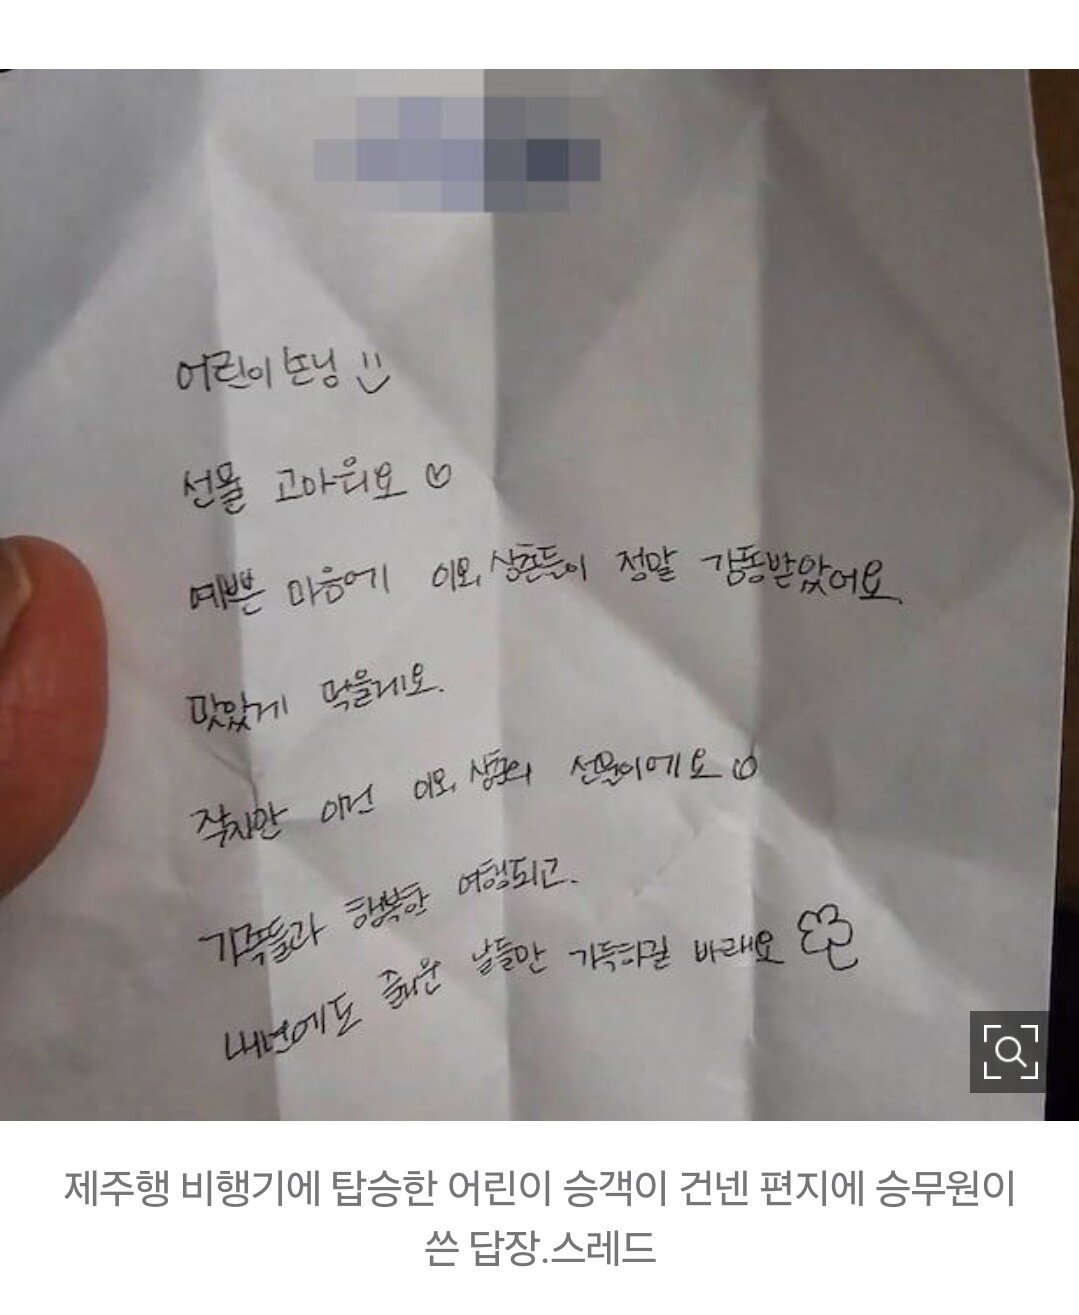 어린이 손님
선물 고마워요
예쁜 마음에 이모, 삼촌들이 정말 감동받았어요.
맛있게 먹을게요.
작지만 이건 이모, 삼촌의 선물이에요
가족들과 행복한 여행되고.
내년에도 즐거운 날들만 가득하길 바래요
제주행 비행기에 탑승한 어린이 승객이 건넨 편지에 승무원이
쓴 답장.스레드